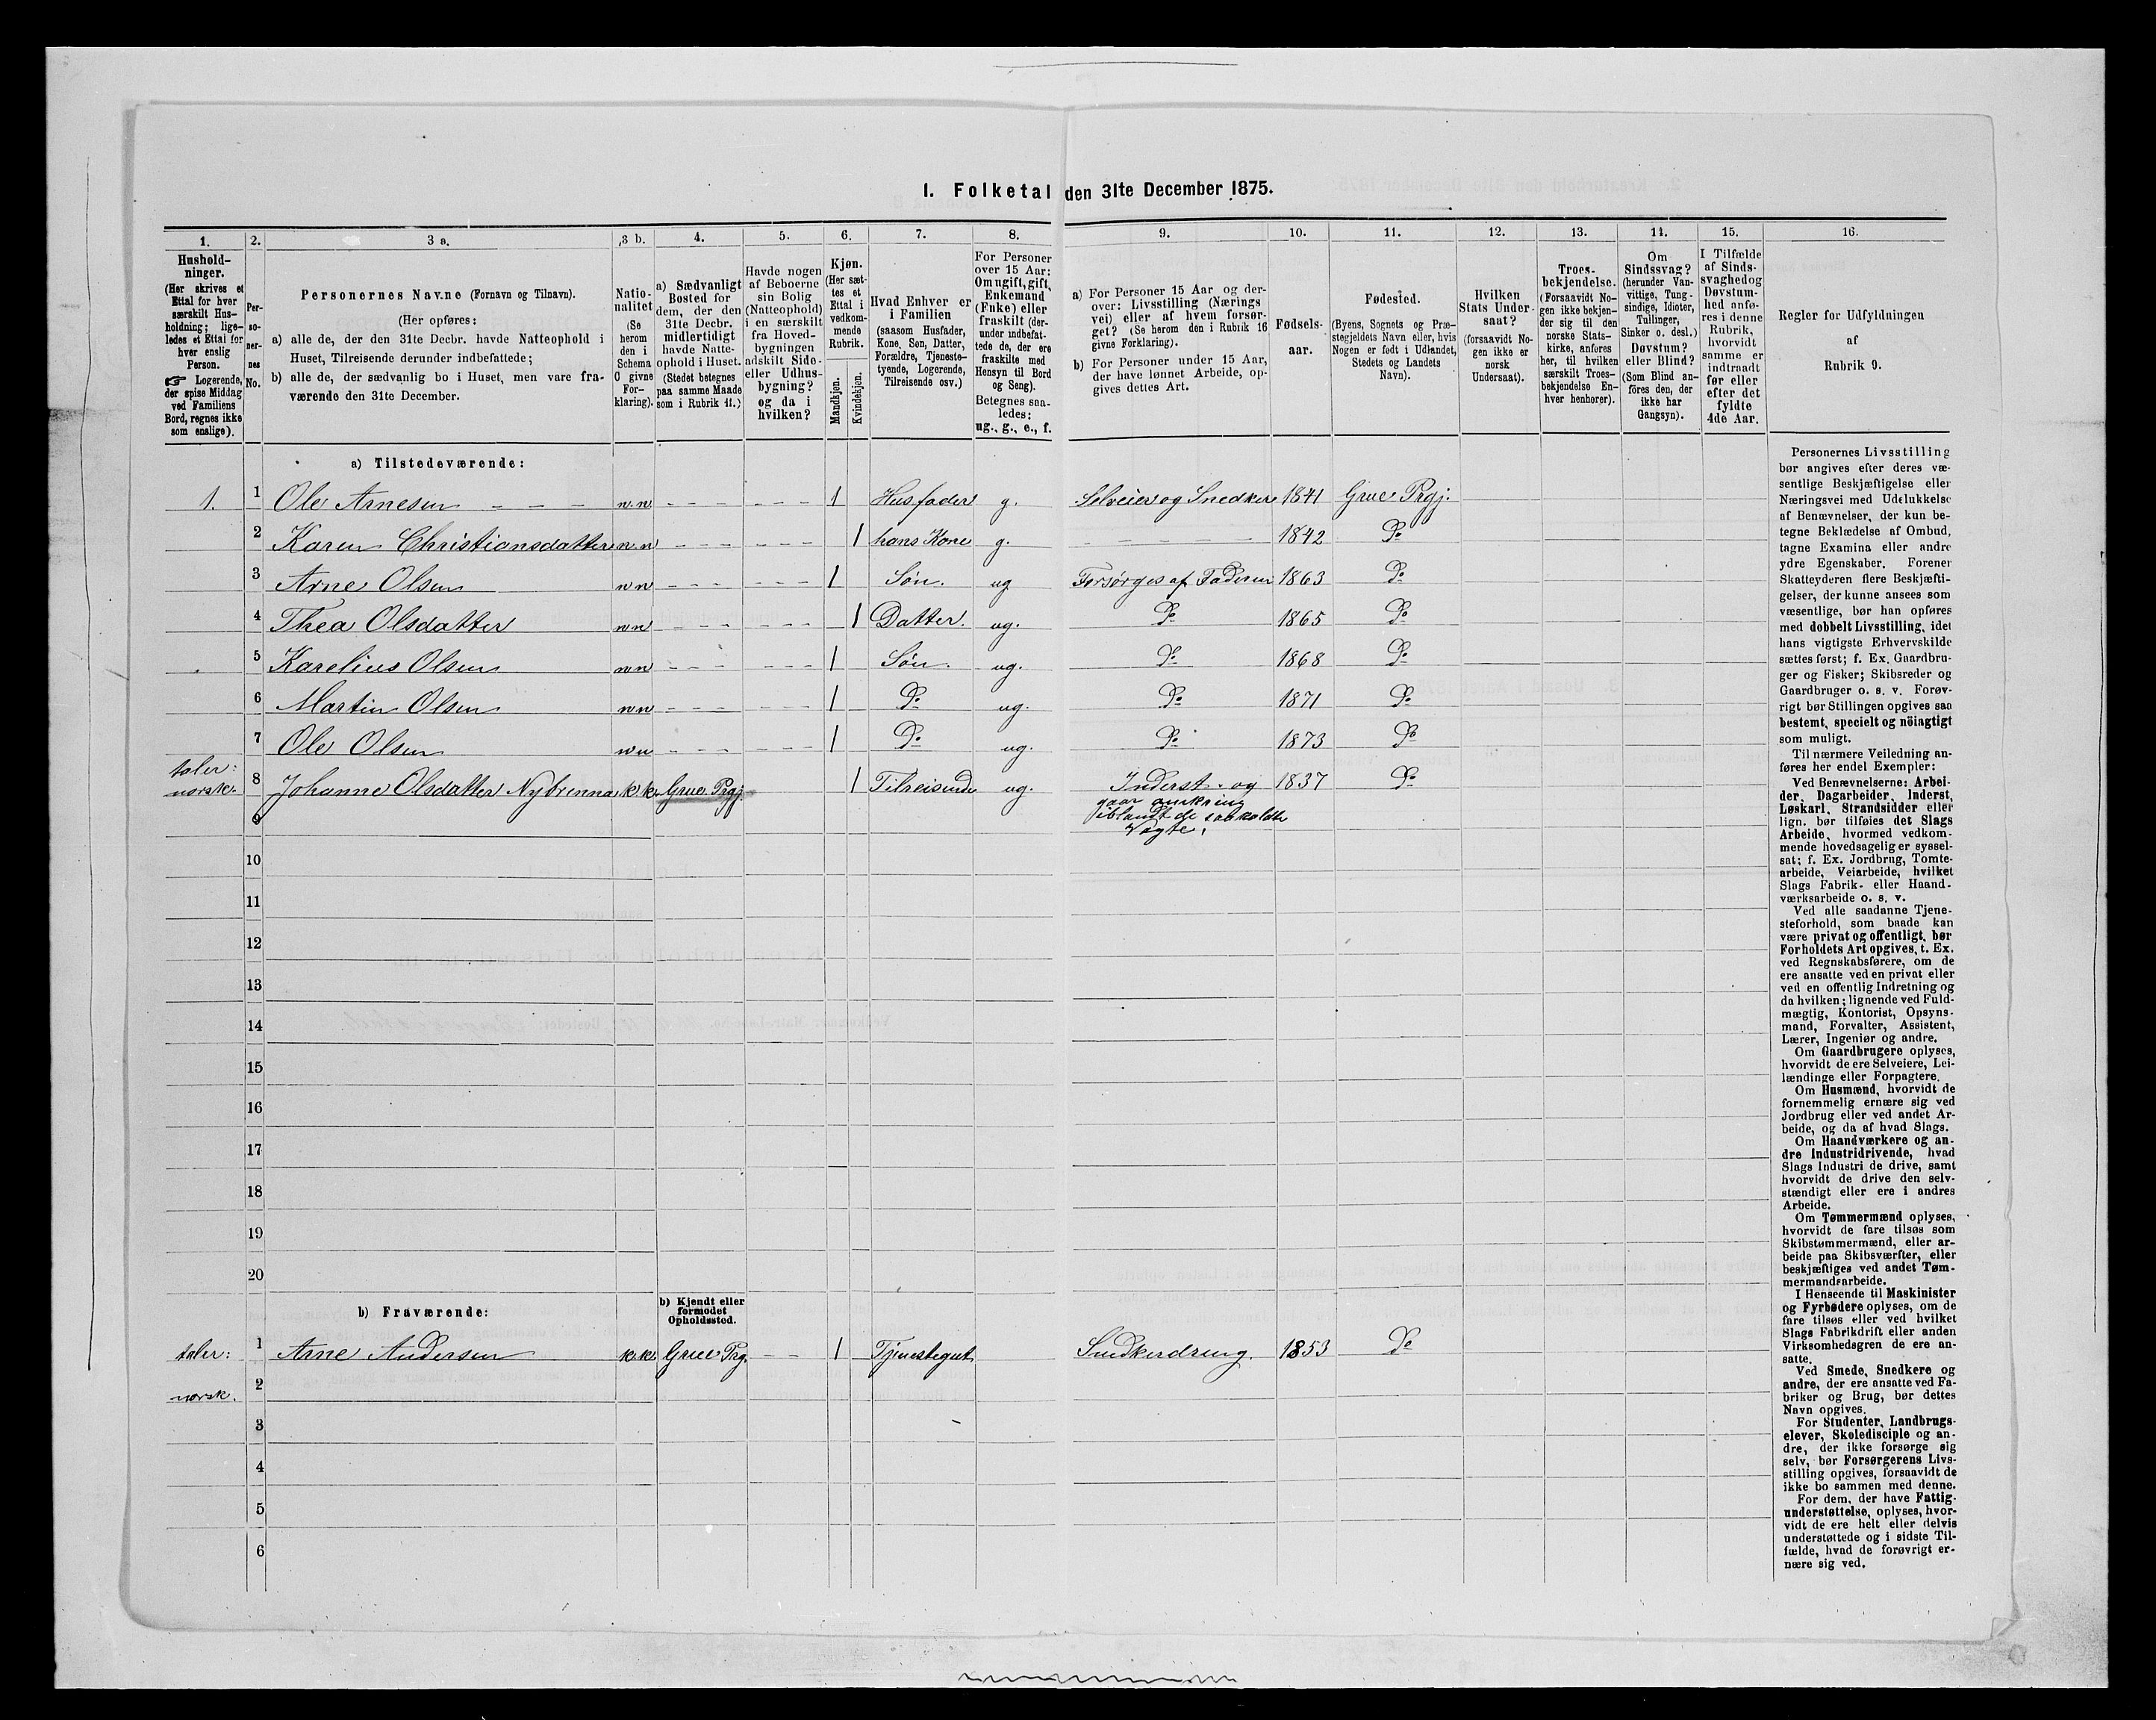 I. Folketal den 31te December 1875.
1. 2. 3 a. 3 b. 4. 5. 6. 7. 8. 9. 10. 11. 12. 13. 14. 15. 16.
Hushold-
ninger.
(Her skrives et
Ettal for hver
særskilt Hus-
holdning; lige-
ledes et Ettal for
hver enslig
Person.
☞ Logerende,
der spise Middag
ved Familiens
Bord, regnes ikke
som enslige).
Per-
so-
ner-
nes
No.
Personernes Navne (Fornavn og Tilnavn).
(Her opføres:
a) alle de, der den 31te Decbr. havde Natteophold i
Huset, Tilreisende derunder indbefattede;
b) alle de, der sædvanlig bo i Huset, men vare fra-
værende den 31te December.
Natio-
nalitet
(Se
herom
den i
Schema
O givne
For-
klaring).
a) Sædvanligt
Bosted for
dem, der den
31te Decbr.
midlertidigt
havde Natte-
ophold i Huset.
(Stedet betegnes
paa samme Maade
som i Rubrik 11.)
Havde nogen
af Beboerne
sin Bolig
(Natteophold)
i en særskilt
fra Hoved-
bygningen
adskilt Side-
eller Udhus-
bygning?
og da i
hvilken?
Kjøn.
(Her sæt-
tes et
Ettal i
vedkom-
mende
Rubrik.
Mandkjøn.
Kvindekjøn.
Hvad Enhver er
i Familien
(saasom Husfader,
Kone, Søn, Datter,
Forældre, Tjeneste-
tyende, Logerende,
Tilreisende osv.)
For Personer
over 15 Aar:
Om ugift, gift,
Enkemand
(Enke) eller
fraskilt (der-
under indbefat-
tede de, der ere
fraskilte med
Hensyn til Bord
og Seng).
Betegnes saa-
ledes:
ug., g., e., f.
a) For Personer 15 Aar og der-
over: Livsstilling (Nærings
vei) eller af hvem forsør-
get? (Se herom den i Rubrik 16
givne Forklaring).
b) For Personer under 15 Aar,
der have lønnet Arbeide, op-
gives dettes Art.
Fødsels-
aar.
Fødested.
(Byens, Sognets og Præ-
stegjeldets Navn eller, hvis
Nogen er født i Udlandet,
Stedets og Landets
Navn).
Hvilken
Stats Under-
saat?
(forsaavidt No-
gen ikke er
norsk
Undersaat).
Troes-
bekjendelse.
(Forsaavidt No-
gen ikke bekjen-
der sig til den
norske Stats-
kirke, anføres
her, til hvilken
særskilt Troes-
bekjendelse En-
hver henhører).
Om
Sindssvag?
(herunder Van-
vittige, Tung-
sindige, Idioter,
Tullinger,
Sinker o. desl.)
Døvstum?
eller Blind?
(Som Blind an-
føres den, der
ikke har
Gangsyn).
I Tilfælde
af Sinds-
svaghed og
Døvstum-
hed anfø-
res i denne
Rubrik,
hvorvidt
samme er
indtraadt
før eller
efter det
fyldte
4de Aar.
Regler for Udfyldningen
af
Rubrik 9.
a) Tilstedeværende:
1. 1 Ole Arnesen n.n. 1 Husfader g. Selveier og Snedker 1841 Grue Prgj.
2 Karen Christiansdatter n.n 1 hans Kone g. 1842 Do
3 Arne Olsen n n 1 Søn. ug Forsørges af Faderen 1863 Do
4 Thea Olsdatter n n 1 Datter. ug. Do 1865 Do
5 Karelius Olsen n n 1 Søn. ug. Do 1868 Do
6 Martin Olsen n n 1 Do ug. Do 1871 Do
7 Ole Olsen n n 1 Do ug. Do 1873 Do
taler:
norsk. 8 Johanne Olsdatter Nybrenna k k. Grue Prgj. 1 Tilreisende ug. Inderst og 1837 Do
gaar omkring
iblandt de saakaldte
Vagte.
9
10
11
12
13
14
15
16
17
18
19
20
b) Fraværende:
b) Kjendt eller
formodet
Opholdssted.
taler: 1 Arne Andersen k.k. Grue Prg. 1 Tjenestegut Snedkerdreng. 1853 Do
norsk. 2
3
4
5
6
Personernes Livsstilling
bør angives efter deres væ-
sentlige Beskjæftigelse eller
Næringsvei med Udelukkelse
af Benævnelser, der kun be-
tegne Beklædelse af Ombud,
tagne Examina eller andre
ydre Egenskaber. Forener
Skatteyderen flere Beskjæfti-
gelser, der kunne ansees som
væsentlige, bør han opføres
med dobbelt Livsstilling, idet
hans vigtigste Erhvervskilde
sættes først; f. Ex. Gaardbru-
ger og Fisker; Skibsreder og
Gaardbruger o. s. v. Forøv-
rigt bør Stillingen opgives saa
bestemt, specielt og nöiagtigt
som muligt.
Til nærmere Veiledning an-
føres her endel Exempler:
Ved Benævnelserne: Arbei-
der, Dagarbeider, Inderst,
Løskarl, Strandsidder eller
lign. bør tilføies det Slags
Arbeide, hvormed vedkom-
mende hovedsagelig er syssel-
sat; f. Ex. Jordbrug, Tomte-
arbeide, Veiarbeide, hvilket
Slags Fabrik- eller Haand-
værksarbeide o. s. v.
Ved alle saadanne Tjene-
steforhold, som baade kan
være privat og offentligt, bør
Forholdets Art opgives, t. Ex.
ved Regnskabsførere, om de
ere ansatte ved en privat eller
ved en offentlig Indretning og
da hvilken; lignende ved Fuld-
mægtig, Kontorist, Opsyns-
mand, Forvalter, Assistent,
Lærer, Ingeniør og andre.
Om Gaardbrugere oplyses,
hvorvidt de ere Selveiere, Lei-
lændinge eller Forpagtere.
Om Husmænd, hvorvidt de
fornemmelig ernære sig ved
Jordbrug eller ved andet Ar-
beide, og da af hvad Slags.
Om Haandværkere og an-
dre Industridrivende, hvad
Slags Industri de drive, samt
hvorvidt de drive den selv-
stændigt eller ere i andres
Arbeide.
Om Tømmermænd oplyses,
hvorvidt de fare tilsøs som
Skibstømmermænd, eller ar-
beide paa Skibsværfter, eller
beskjæftiges ved andet Tøm-
mermandsarbeide.
I Henseende til Maskinister
og Fyrbødere oplyses, om de
fare tilsøs eller ved hvilket
Slags Fabrikdrift eller anden
Virksomhedsgren de ere an-
satte.
Ved Smede, Snedkere og
andre, der ere ansatte ved Fa-
briker og Brug, bør dettes
Navn opgives.
For Studenter, Landbrugs-
elever, Skoledisciple og an-
dre, der ikke forsørge sig
selv, bør Forsørgerens Livs-
stilling opgives, forsaavidt de
ikke bo sammen med denne.
For dem, der have Fattig-
understøttelse, oplyses, hvor-
vidt de ere helt eller delvis
understøttede og i sidste Til-
fælde, hvad de forøvrigt er-
nære sig ved.